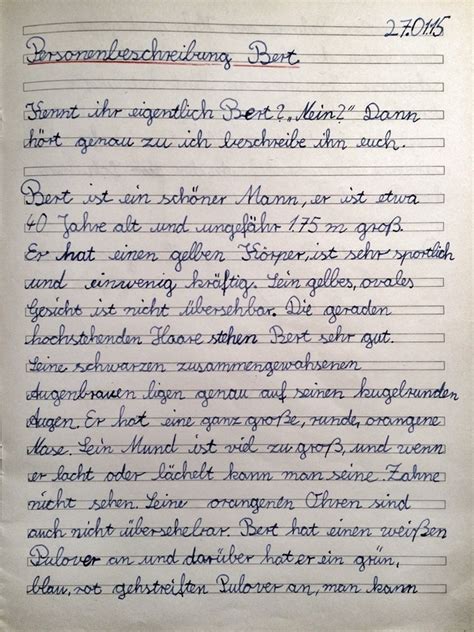 27.01.15
Personenbeschreibung Bert
Kennt ihr eigentlich Bert? „Nein?“ Dann
hört genau zu ich beschreibe ihn euch.
Bert ist ein schöner Mann, er ist etwa
40 Jahre alt und ungefähr 1.75 m groß.
Er hat einen gelben Körper, ist sehr sportlich
und einwenig kräftig. Sein gelbes, ovales
Gesicht ist nicht übersehbar. Die geraden
hochstehenden Haare stehen Bert sehr gut.
Seine schwarzen zusammengewahsenen
Augenbrauen ligen genau auf seinen kugelrunden
Augen. Er hat eine ganz große, runde, orangene
Nase. Sein Mund ist viel zu groß, und wenn
er lacht oder lächelt kann man seine Zahne
nicht sehen. Seine orangenen Ohren sind
auch nicht übersehebar. Bert hat einen weißen
Pulover an und darüber hat er ein grün,
blau, rot gehstreiften Pulover an, man kann